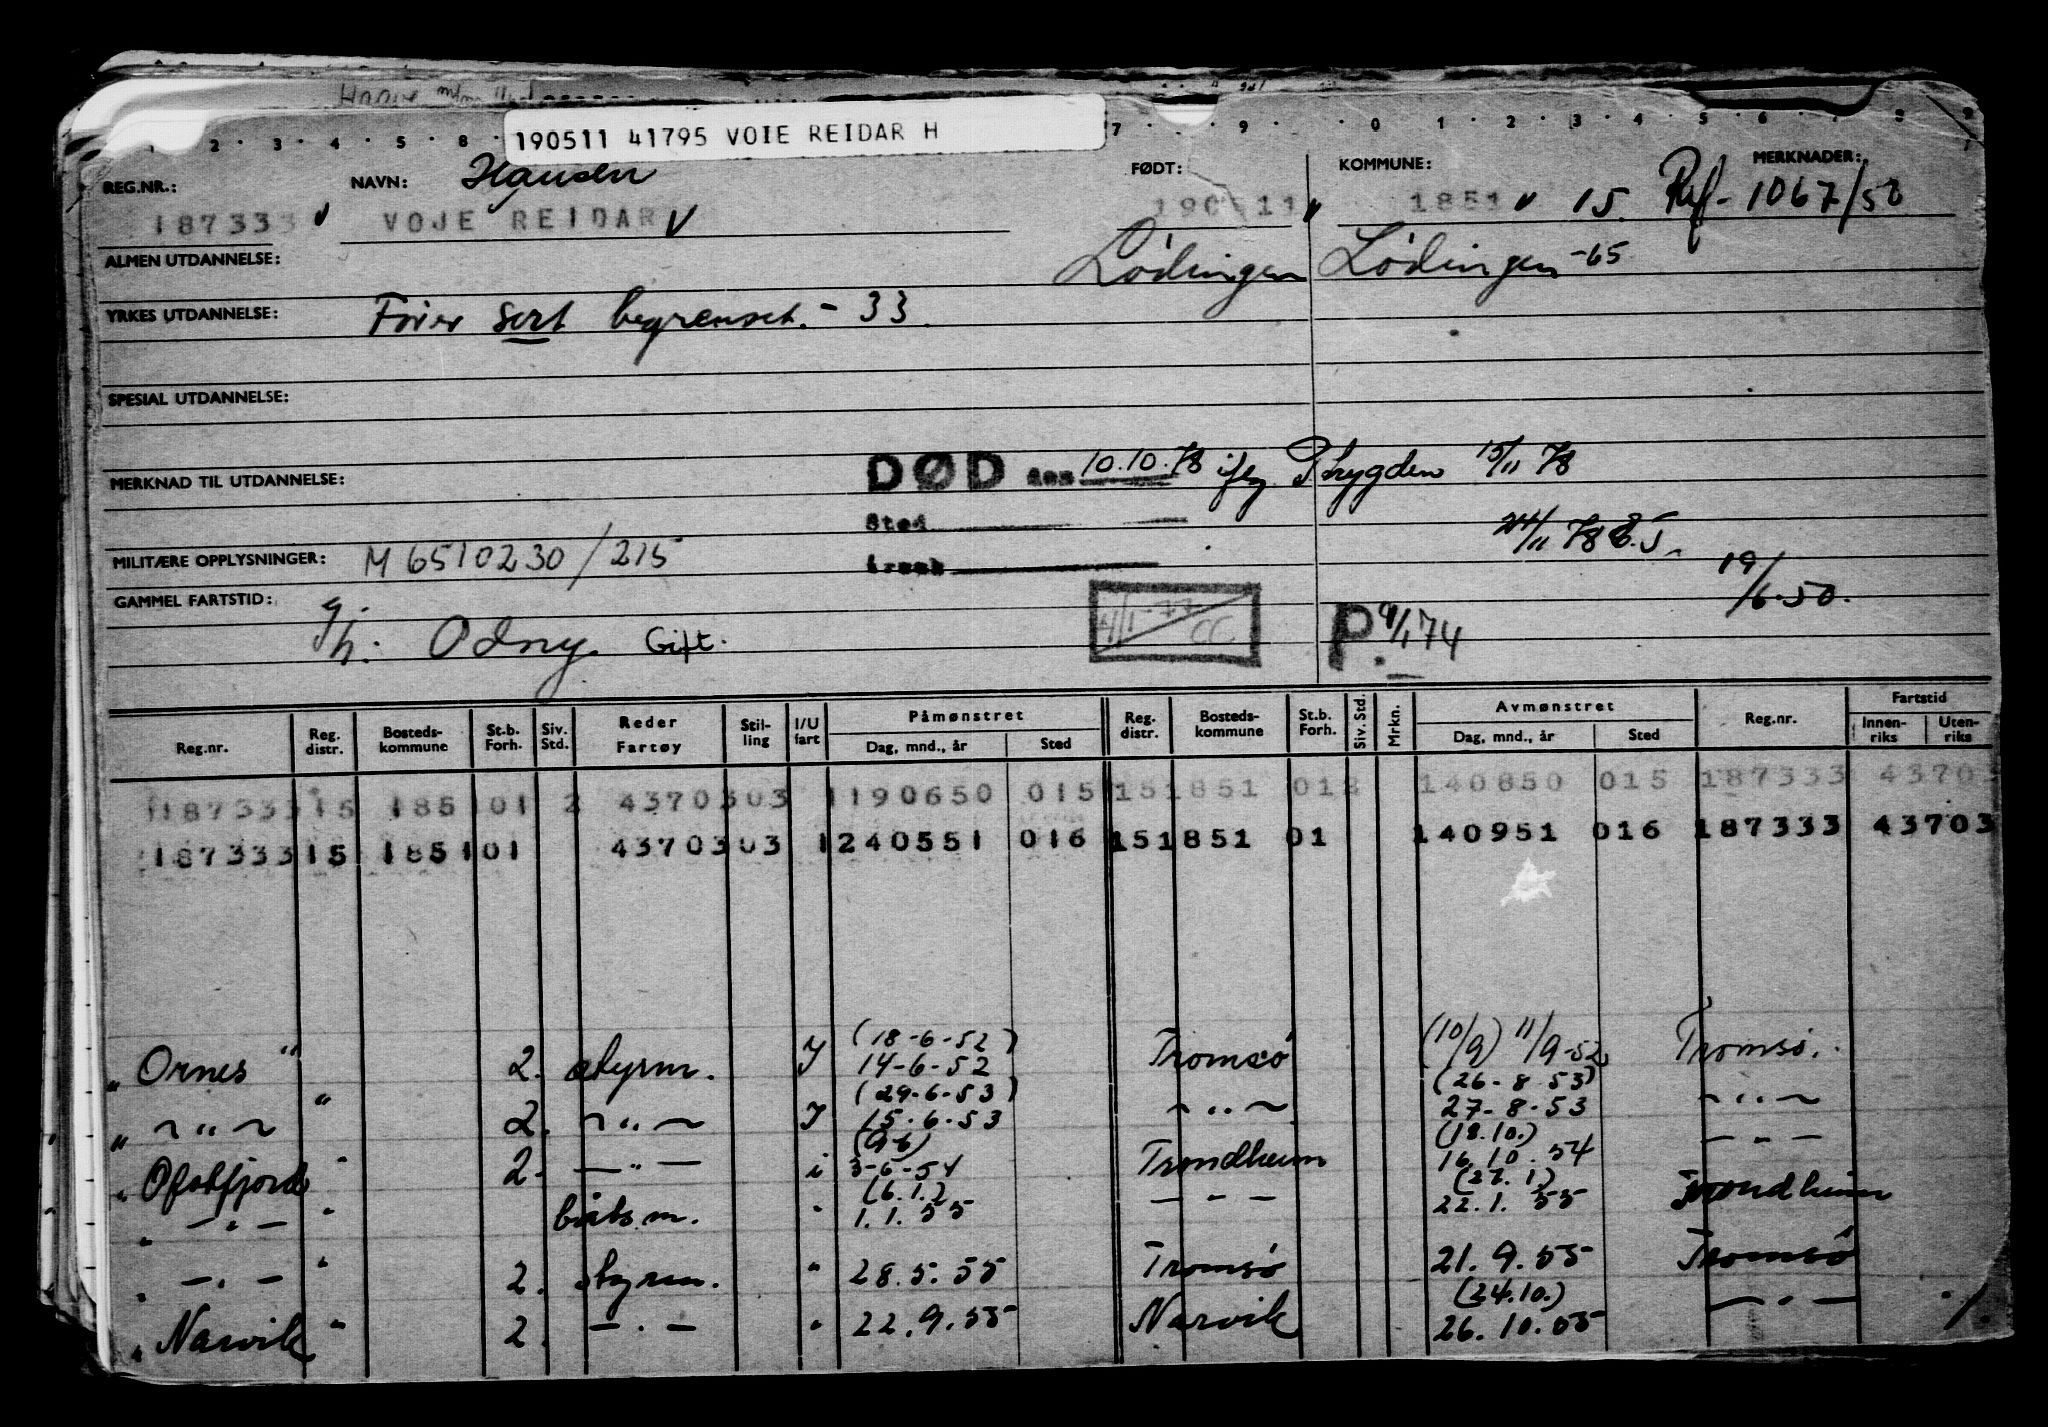 190511 41795 VOIE REIDAR H
REG.NR.: NAVN: Hansen FØDT: KOMMUNE: MERKNADER:
187333 v VOJE REIDAR v 190511 v 1851 v 15. Ref- 1067/50
ALMEN UTDANNELSE: Lødingen Lødingen -65
YRKES UTDANNELSE: sert begrenset. - 33.
SPESIAL UTDANNELSE:
MERKNAD TIL UTDANNELSE: DØD den 10.10.78 ifg. Trygden 15/11 78
Sted 24/11 78
MILITÆRE OPPLYSNINGER: M 6510230/215 årsak 19/6.50.
GAMMEL FARTSTID: 4/1-77 CC P 4/1 74
g/h. Odny. Gift.
Reg.nr. Reg. distr. Bosteds-kommune St.b. Forh. Siv. Std. Reder Fartøy Stil-ling I/U fart Påmønstret Dag, mnd., år Sted Reg. distr. Bosteds-kommune St.b. Forh. Siv. Std. Mrkn. Avmønstret Dag, mnd., år Sted Reg.nr. Fartstid Innen-riks Uten-riks
187333 15 1851 01 2 43703 03 1 190650 015 15 1851 01 2 140850 015 187333 43703
187333 15 1851 01 43703 03 1 240551 016 15 1851 01 140951 016 187333 43703
(18-6-52) (10/9) 11/9-52
" Ornes " 2. styrm. I 14-6-52 Tromsö Tromsö.
(29-6-53) (26-8 53)
" ~ " ~ " 2. ~ " ~ I 15.6.53 ~ " ~ 27-8-53 ~ " ~
(9-6) (18.10.)
" Ofotfjord " 2. — " — i 3-6-54 Trondheim 16.10.54 — " —
(6.1.) (27.1)
" — " — " båtsm. " 1.1.55 — " — 22.1.55 Trondheim
" — " — " 2. styrm. " 28.5.55 Tromsö 21.9.55 Tromsö
(24.10.)
" Narvik " 2. — " — " 22.9.55 Narvik 26.10.55 — " —